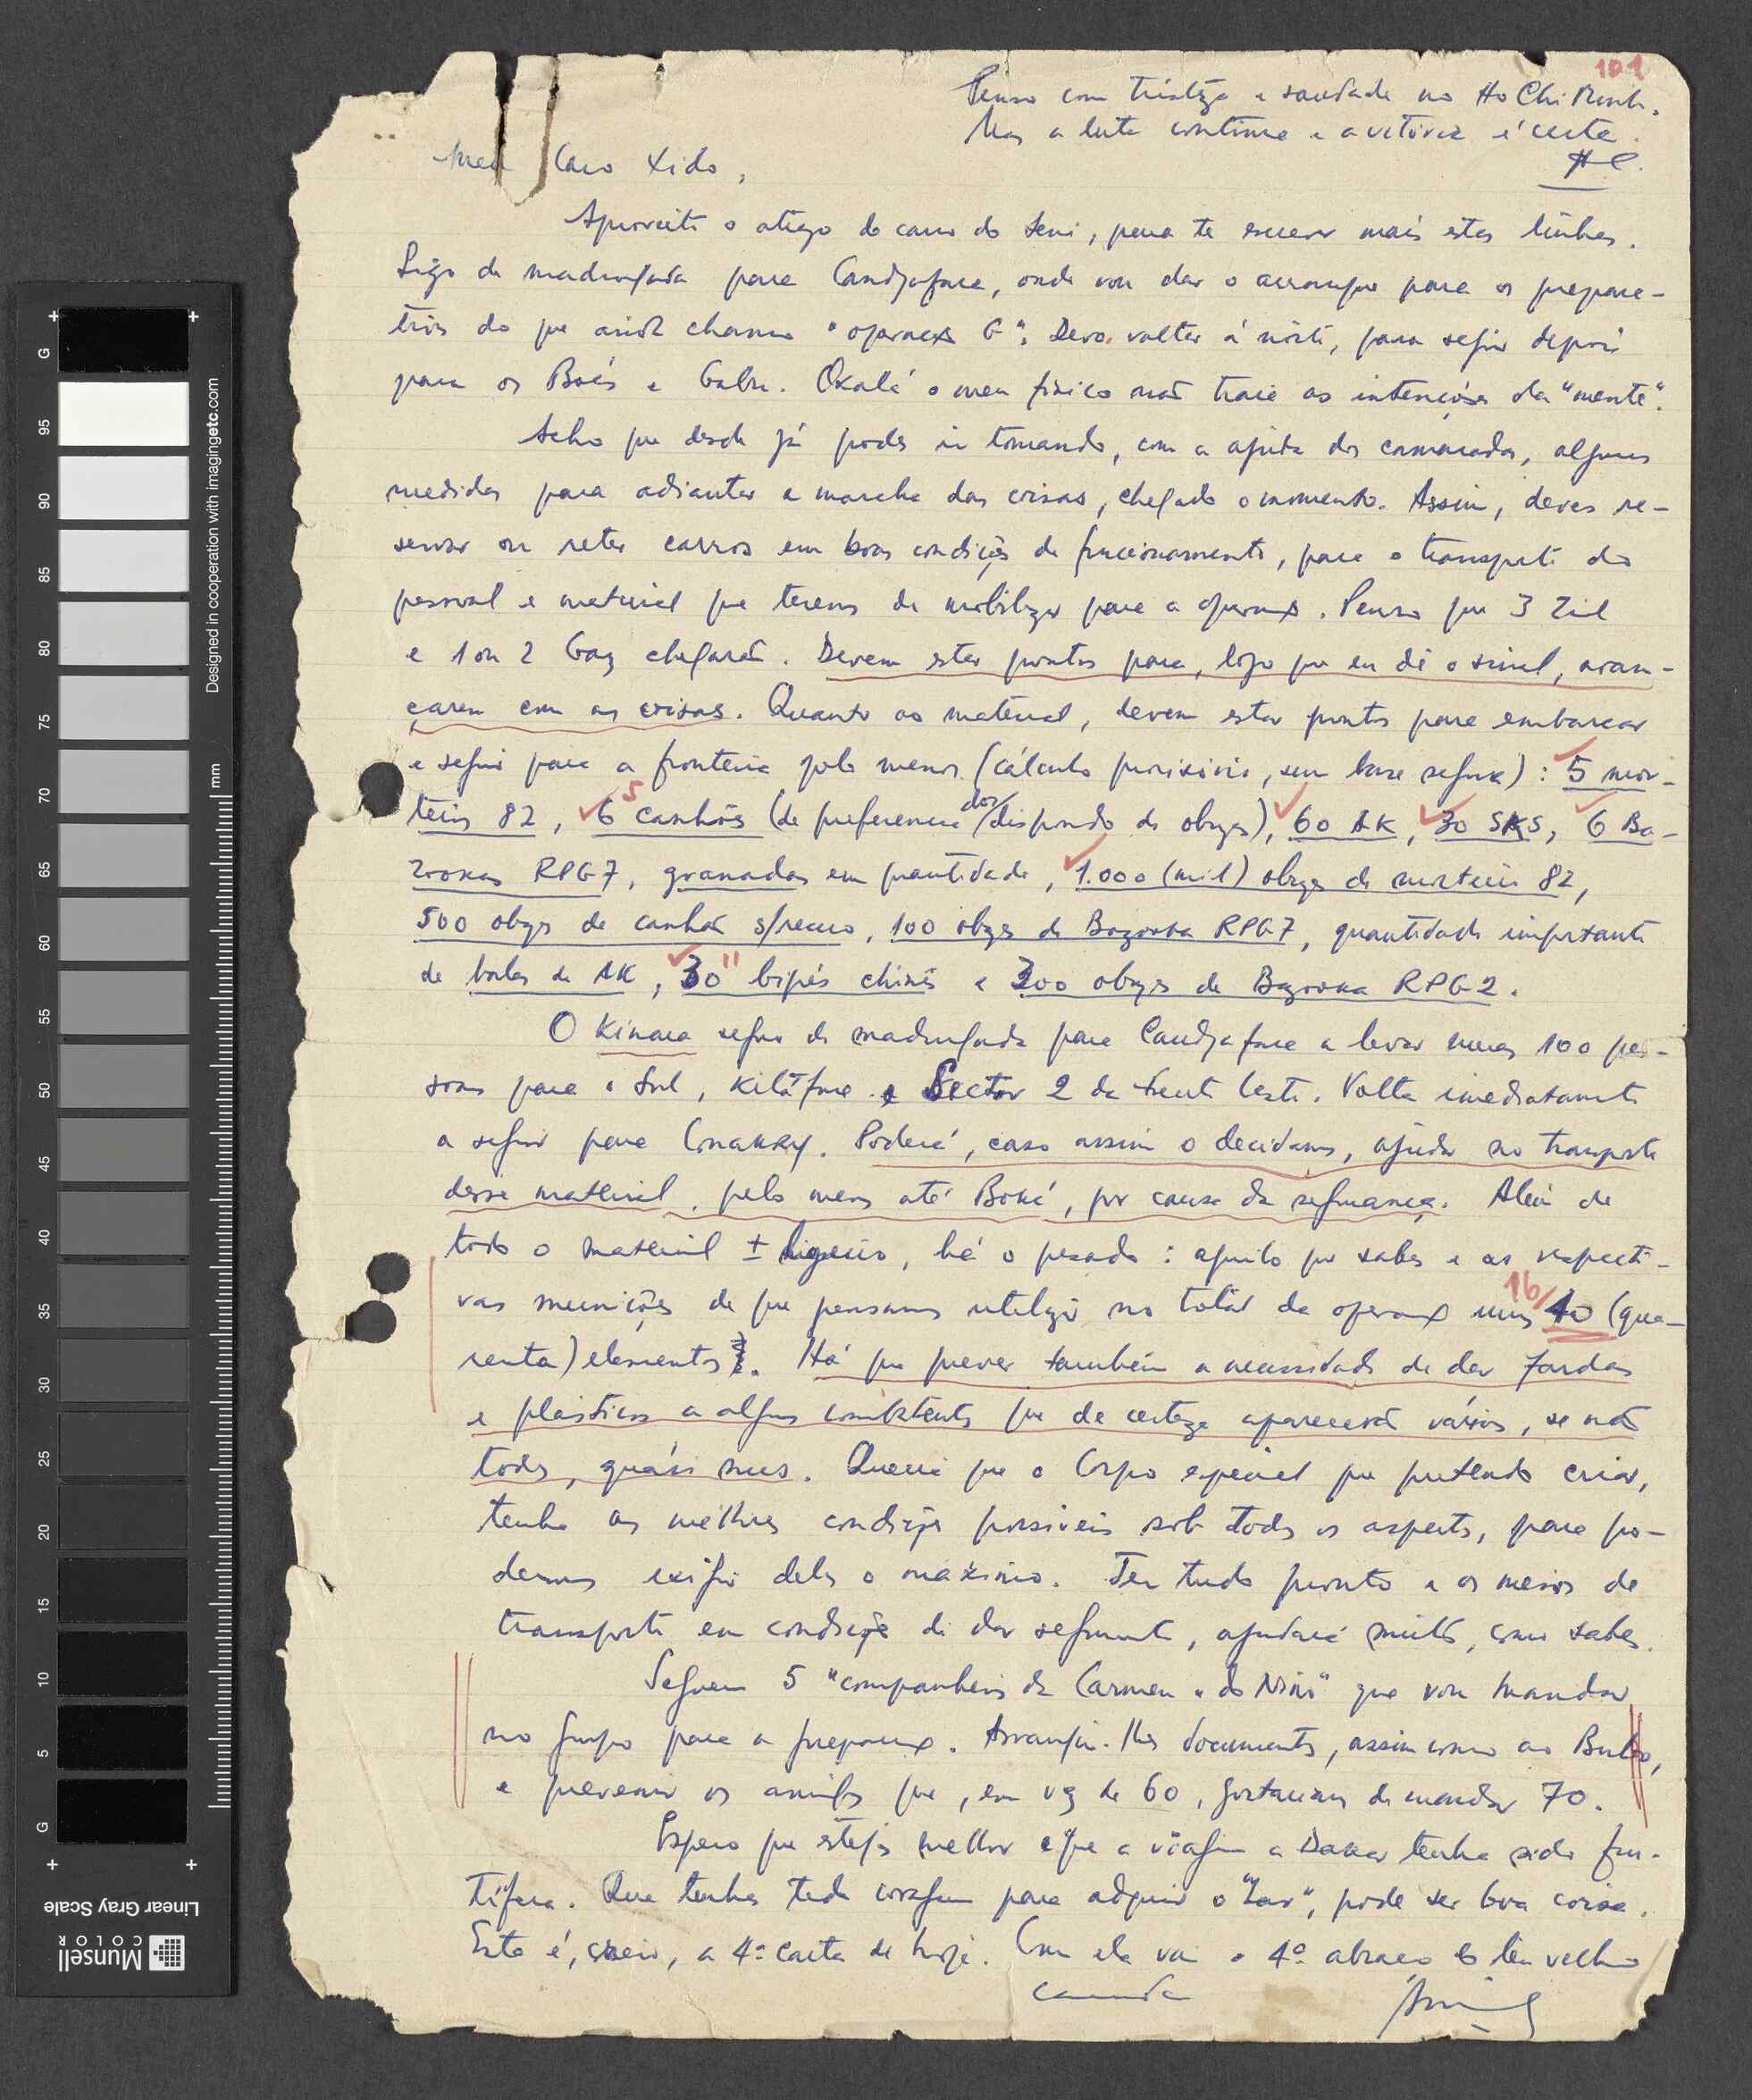 101
Penso com tristeza e saudade no Ho Chi Minh.
Mas a luta continua e a vitória é certa.
AC
Meu Caro Xido,
Aproveito o atrazo do carro do Seni, para te escrever mais estas linhas.
Sigo de madrugada para Candjafara, onde vou dar o arranque para os prepara-
tivos do que chamo "operação G". Devo voltar à noite, para seguir depois
para os Boés e Gabu. Oxalá o meu físico não traia as intenções da "mente".
Acho que desde já podes ir tomando, com a ajuda dos camaradas, algumas
medidas para adiantar a marcha das coisas, chegado o momento. Assim, deves re-
servar ou reter carros em boas condições de funcionamento, para o transporte do
pessoal e material que teremos de mobilizar para a operação. Penso que 3 Zil
e 1 ou 2 Gaz chegarão. Devem estar prontos para, logo que eu dê o sinal, avan-
çarem com as coisas. Quanto ao material, devem estar prontos para embarcar
e seguir para a fronteira pelo menos (cálculo provisório, sem base segura): 5 mor-
teiros 82, 6 5 canhões (de preferencia dos/dispondo de obuzes), 60 AK, 30 SKS, 6 Ba-
zookas RPG7, granadas em quantidade, 1.000 (mil) obuzes de morteiro 82,
500 obuzes de canhão s/recuo, 100 obuzes de Bazooka RPG7, quantidade importante
de balas de AK, 30 11 bipés chinês e 200 obuzes de Bazooka RPG2.
O Kinara segue de madrugada para Candjafara a levar umas 100 pes-
soas para o Sul, Kitáfine e Sector 2 da Frente Leste. Volta imediatamente
a seguir para Conakry. Poderá, caso assim o decidamos, ajudar no transporte
desse material, pelo menos até Boké, por causa da segurança. Além de
todo o material ± ligeiro, há o pesado: aquilo que sabes e as respecti-
vas munições de que pensamos utilizar no total da operação uns 40 16 (qua-
renta) elementos. Há que prever também a necessidade de dar fardas
e plásticos a alguns combatentes que de certeza aparecerão vários, se não
todos, quási nus. Queria que o Corpo especial que pretendo criar,
tenha as melhores condições possiveis sob todos os aspectos, para po-
dermos exigir deles o maximo. Ter tudo pronto e os meios de
transporte em condições de dar seguimento, ajudará muito, como sabes.
Seguem 5 "companheiros da Carmen e do Nino" que vou mandar
no grupo para a preparação. Arranja-lhes documentos, assim como ao
e prevenir os amigos que, em vez de 60, gostariamos de mandar 70.
Espero que estejas melhor e que a viagem a Dakar tenha sido fru-
tifera. Que tenhas tido coragem para adquirir o pode ser boa coisa.
Esta é, creio, a 4ª carta de hoje. Com ela vai o 4º abraço do teu velho
camarada